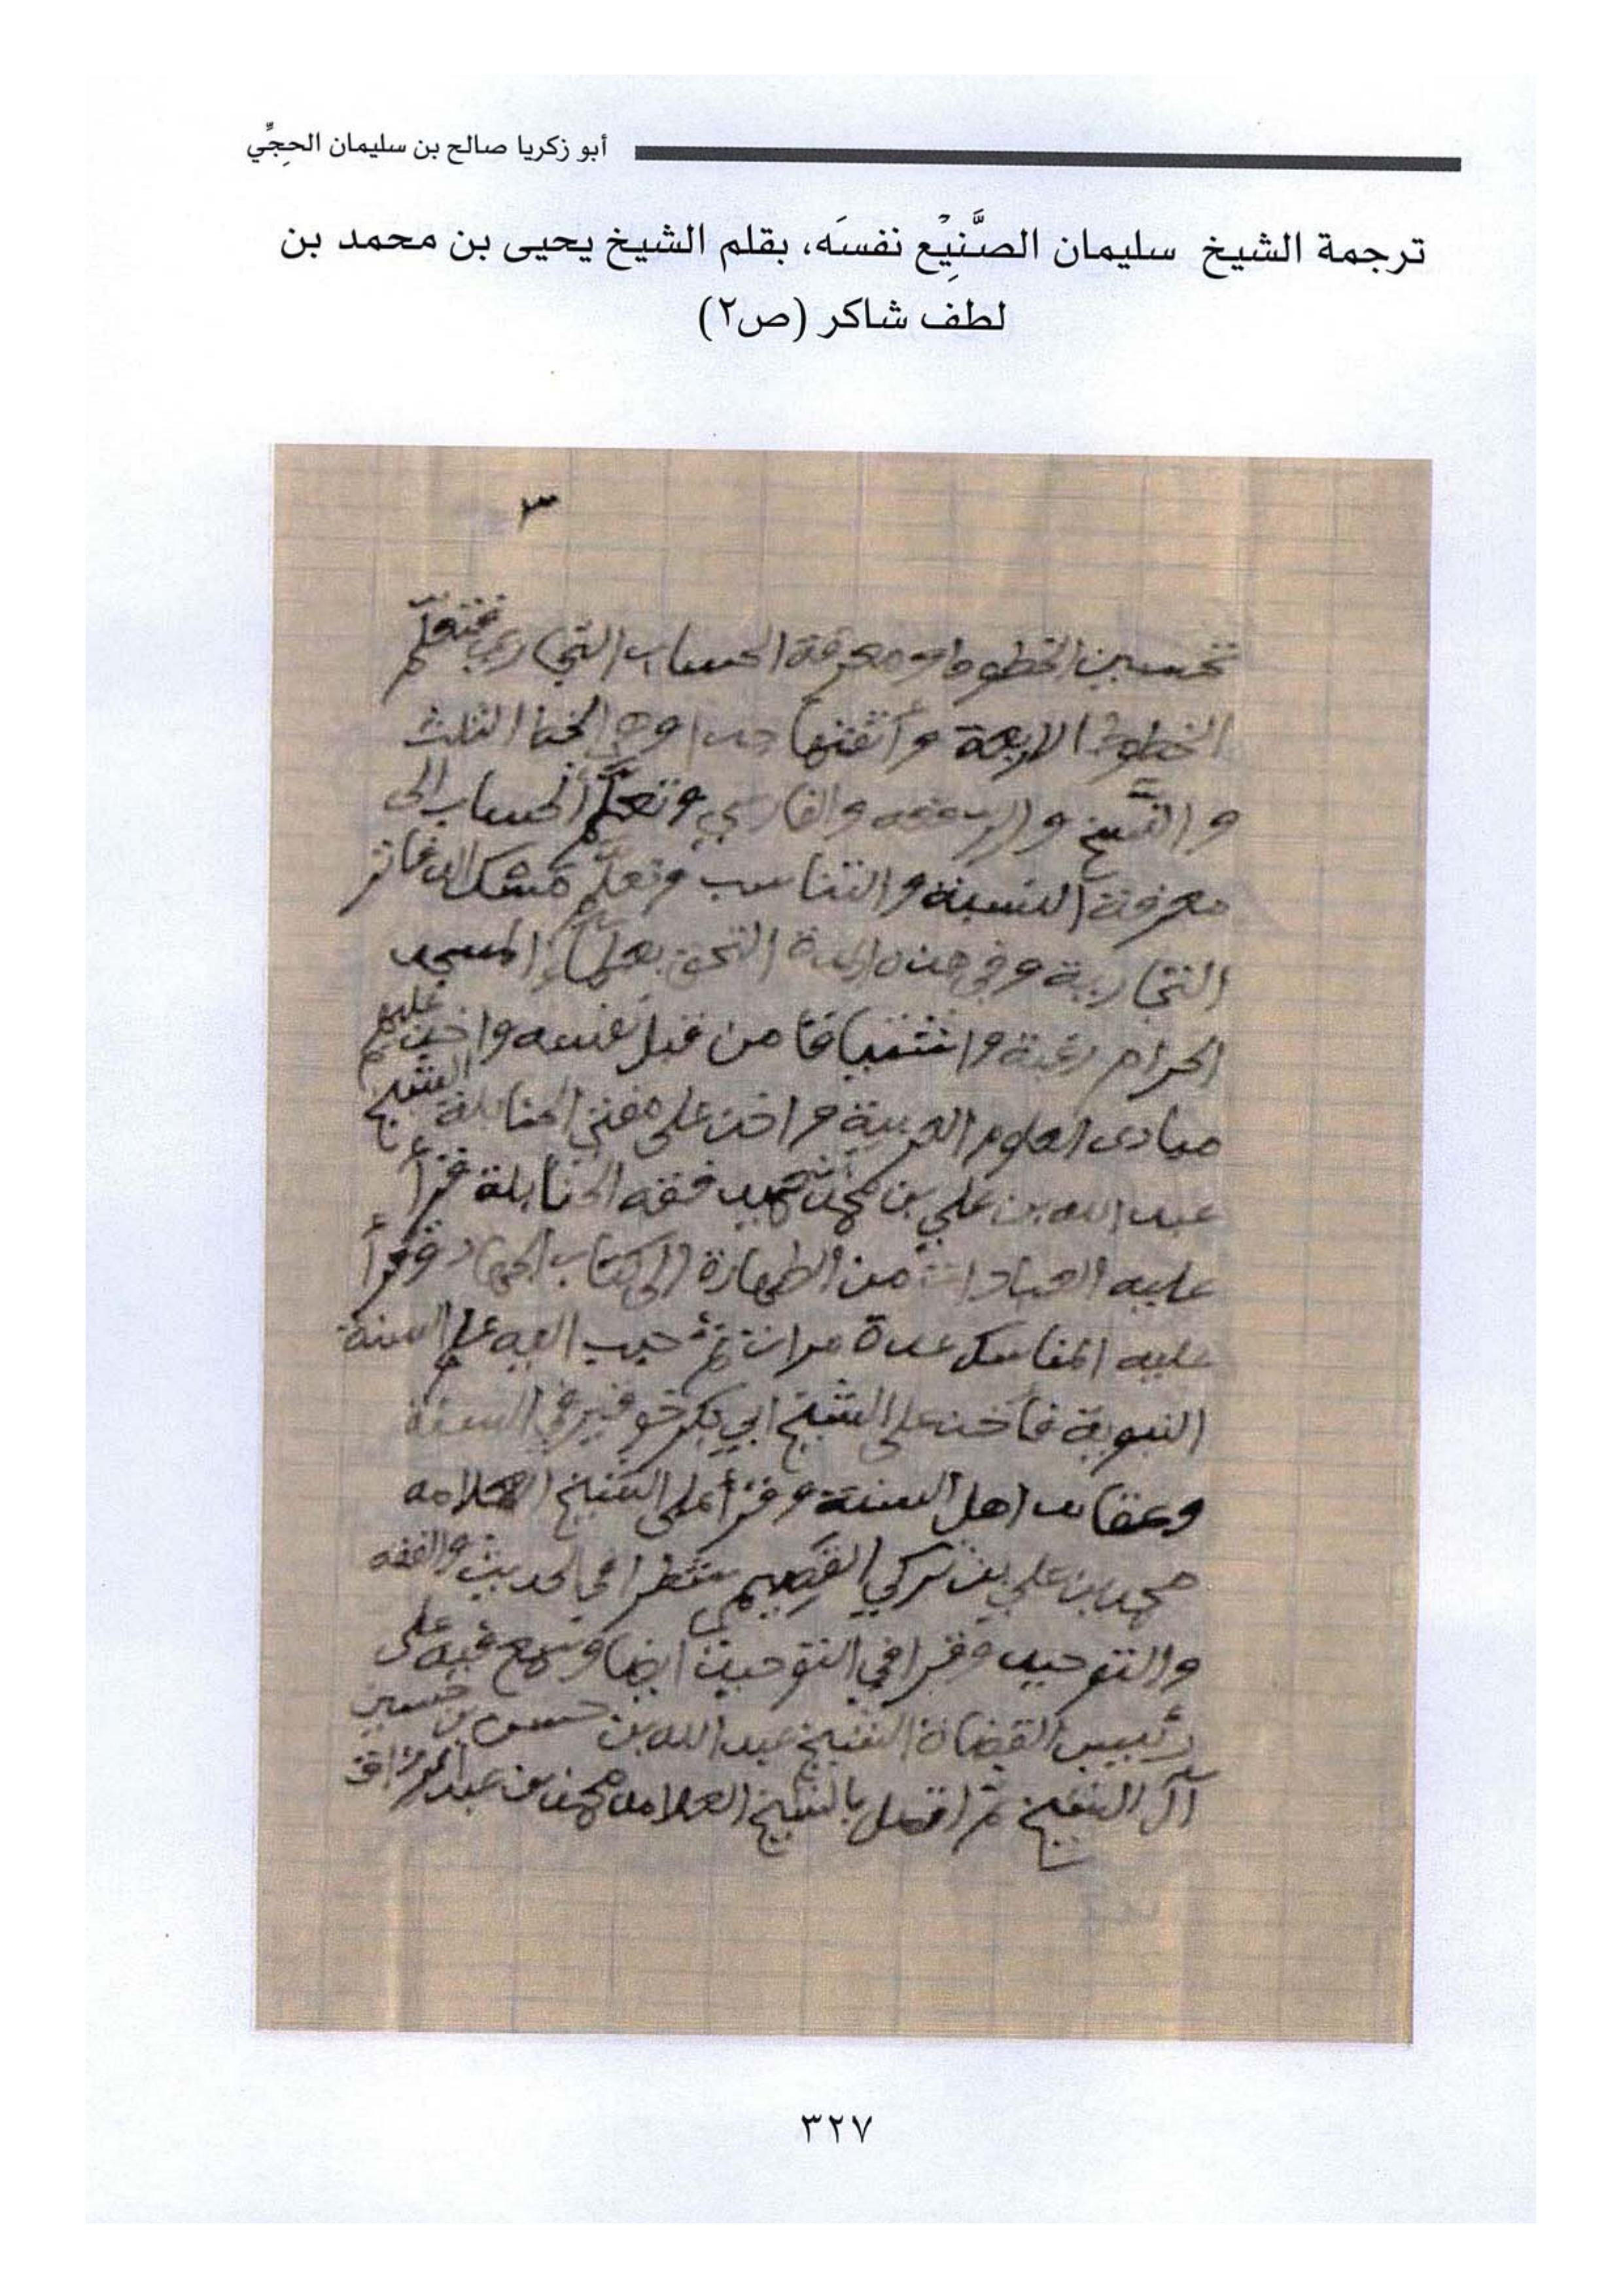 أبو زكريا صالح بن سليمان الحِجِّي
ترجمة الشيخ سليمان الصَّنِيْع نفسَه، بقلم الشيخ يحيى بن محمد بن
لطف شاكر (ص٢)
٣
تحسين الخطوط ومعرفة الحساب التجاري فتعلَّم
الخطوط الاربعة وأتقنها جدا وهي الثلث
والنَّسخ والرقعه والفارسي وتعلَّم الحساب الى
معرفة النسبة والتناسب وتعلَّم مسك الدفاتر
التجارية وفي هذه المدة التحق بعلماء المسجد
الحرام رغبة واشتياقا من قبل نفسه واخذ عليهم
مبادى العلوم العربية واخذ على مفتي الحنابلة الشيخ
عبد الله بن علي بن محمد بن حميد فقه الحنابلة قرأ
عليه العبادات من الطهارة الى كتاب الجهاد وقرأ
عليه المناسك عدة مرات ثم حبب اليه علم السنة
النبوية فأخذ على الشيخ ابي بكر خوقير في السنة
وعقائد اهل السنة وقرأ على الشيخ العلامه
محمد بن علي بن تركي القصيمي شطرا في الحديث والفقه
والتوحيد وقرا في التوحيد ايضا وسمع فيه على
رئيس القضاة الشيخ عبد الله بن حسن بن حسين
آل الشيخ ثم اتصل بالشيخ العلامه محمد بن عبد الرزاق
٣٢٧